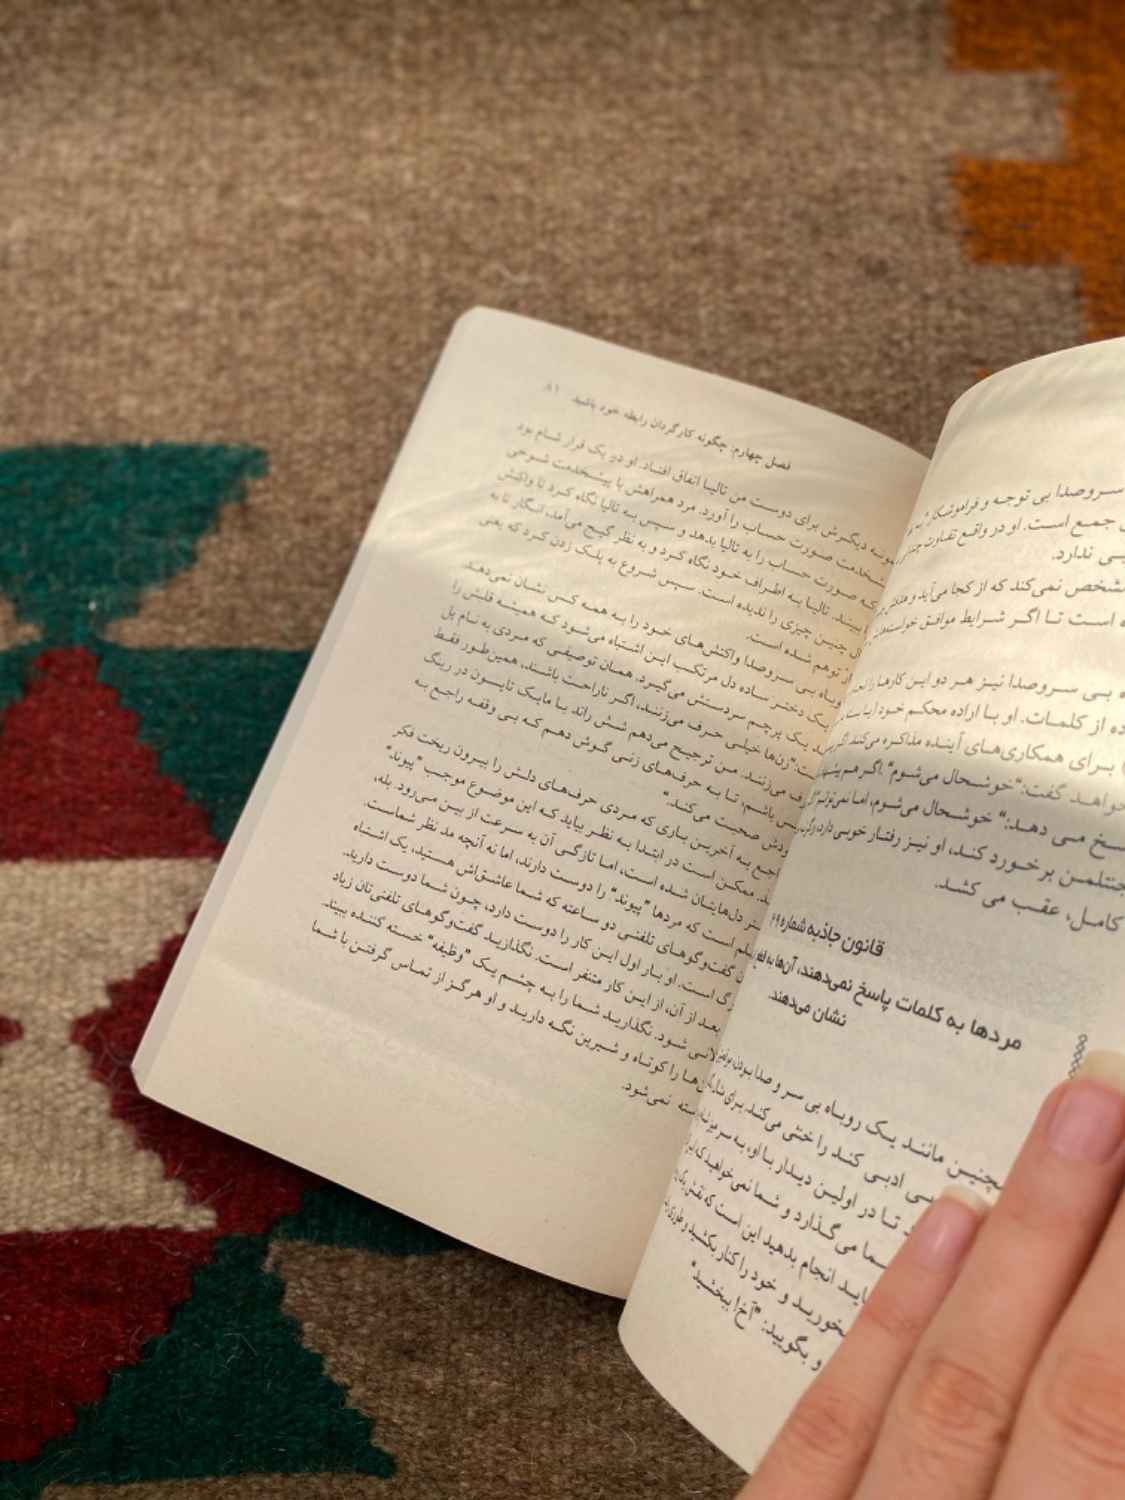 سروصدا بی توجه و فراموشکار
جمع است. او در واقع تفاوت
ندارد.
مشخص نمی‌کند که از کجا می‌آید و
است تا اگر شرایط موافق
بی سروصدا نیز هر دو این کارها را
از کلمات. او با اراده محکم خود
برای همکاری‌های آینده مذاکره می‌کند
خواهد گفت: "خوشحال می‌شوم" اگر هم
می دهد: "خوشحال می‌شوم، اما نمی‌توانم"
جنتلمن برخورد کند، او نیز رفتار خوبی دارد،
کامل، عقب می کشد.
قانون جاذبه شماره ۲۹
مردها به کلمات پاسخ نمی‌دهند، آن‌ها به
نشان می‌دهند.
مانند یک روباه بی سر و صدا بودن
ادبی کند را خنثی می‌کند. برای
تا در اولین دیدار با او، به سر میز
می گذارد و شما نمی‌خواهید که
انجام بدهید این است که نقش یک
و خود را کنار بکشید و طوری
و بگویید: "آخ! ببخشید"
فصل چهارم: چگونه کارگردان رابطه خود باشید ۸۱
دیگرش برای دوست من تالیا اتفاق افتاد. او در یک قرار شام بود
صورت حساب را آورد. مرد همراهش با پیشخدمت شوخی
که صورت حساب را به تالیا بدهد و سپس به تالیا نگاه کرد تا واکنش
ببیند. تالیا به اطراف خود نگاه کرد و به نظر گیج می‌آمد، انگار تا به
چنین چیزی را ندیده است. سپس شروع به پلک زدن کرد که یعنی
توهم شده است.
بی سروصدا واکنش‌های خود را به همه کس نشان نمی‌دهد.
یک دختر ساده دل مرتکب این اشتباه می‌شود که همیشه قلبش را
یک پرچم سردستش می‌گیرد. همان توصیفی که مردی به نام پل
"زن‌ها خیلی حرف می‌زنند، اگر ناراحت باشند، همین‌طور فقط
می‌زنند. من ترجیح می‌دهم شش راند با مایک تایسون در رینگ
باشم، تا به حرف‌های زنی گوش دهم که بی وقفه راجع به
صحبت می‌کند."
به آخرین باری که مردی حرف‌های دلش را بیرون ریخت فکر
ممکن است در ابتدا به نظر بیاید که این موضوع موجب "پیوند"
دل‌هایتان شده است، اما تازگی آن به سرعت از بین می‌رود. بله،
است که مردها "پیوند" را دوست دارند، اما نه آنچه مد نظر شماست.
گفت‌وگوهای تلفنی دو ساعته که شما عاشق‌اش هستید، یک اشتباه
است. او بار اول این کار را دوست دارد، چون شما دوست دارید.
بعد از آن، از این کار متنفر است. نگذارید گفت‌وگوهای تلفنی‌تان زیاد
شود. نگذارید شما را به چشم یک "وظیفه" خسته کننده ببیند.
را کوتاه و شیرین نگه دارید و او هرگز از تماس گرفتن با شما
نمی‌شود.